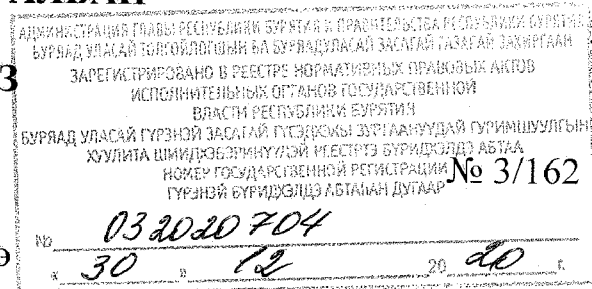 АДМИНИСТРАЦИЯ ГЛАВЫ РЕСПУБЛИКИ БУРЯТИЯ И ПРАВИТЕЛЬСТВА РЕСПУБЛИКИ БУРЯТИЯ
БУРЯАД УЛАСАЙ ТОЛГОЙЛОГШЫН БА БУРЯАД УЛАСАЙ ЗАСАГАЙ ГАЗАРАЙ ЗАХИРГААН
З
ЗАРЕГИСТРИРОВАНО В РЕЕСТРЕ НОРМАТИВНЫХ ПРАВОВЫХ АКТОВ
ИСПОЛНИТЕЛЬНЫХ ОРГАНОВ ГОСУДАРСТВЕННОЙ
ВЛАСТИ РЕСПУБЛИКИ БУРЯТИЯ
БУРЯАД УЛАСАЙ ГҮРЭНЭЙ ЗАСАГАЙ ГҮЙСЭДХЭХЫ ЗУРГААНУУДАЙ ГУРИМШУУЛГЫН
ХУУЛИТА ШИИДХЭБЭРИНҮҮДЭЙ РЕЕСТРТЭ БҮРИДХЭЛДЭ АБТАА
НОМЕР ГОСУДАРСТВЕННОЙ РЕГИСТРАЦИИ № 3/162
ГҮРЭНЭЙ БҮРИДХЭЛДЭ АБТАҺАН ДУГААР
№ 032020704
« 30 » 12 20 20 г.